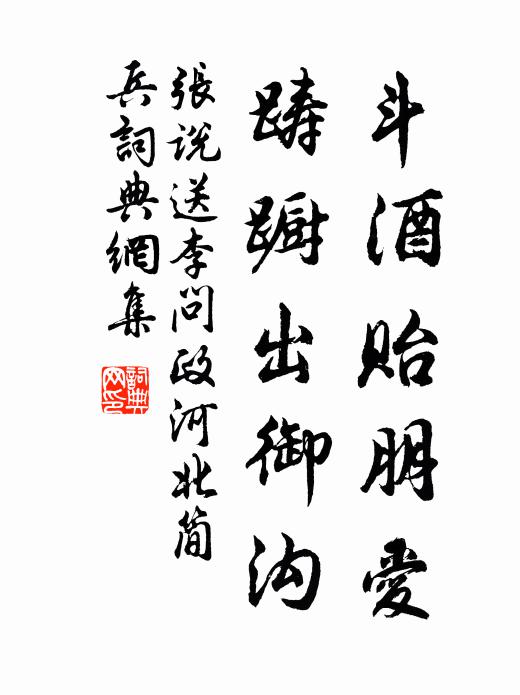 斗酒贻朋愛
踌蹰出御沟
張说送李问政河北简
兵詞典網集
詞典网印